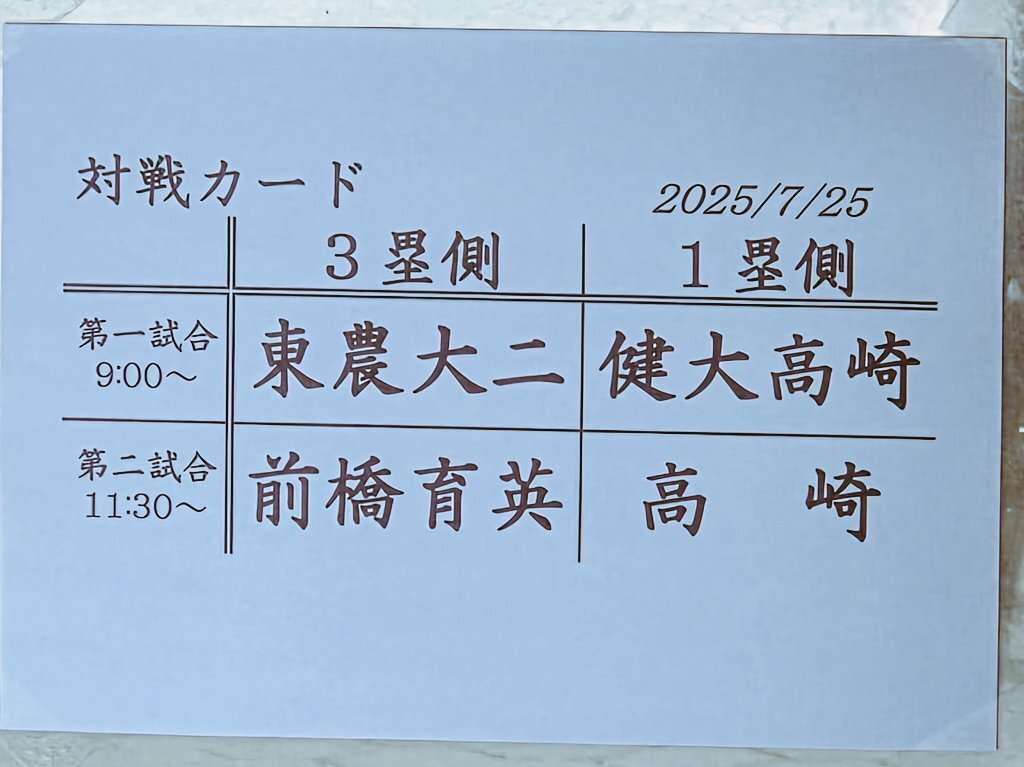 対戦カード 2025/7/25
３塁側 １塁側
第一試合
9:00～
東農大二 健大高崎
第二試合
11:30～
前橋育英 高 崎